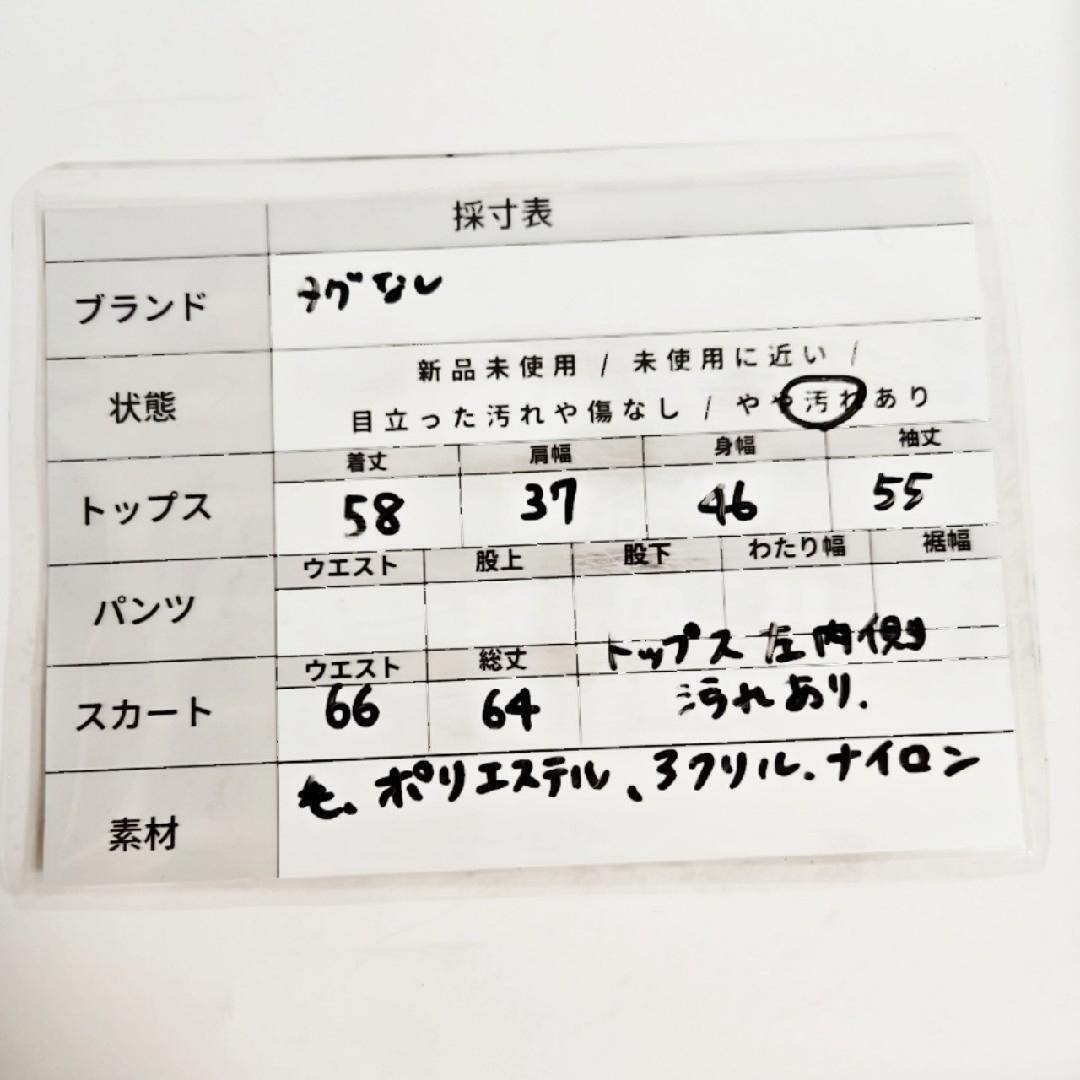 採寸表
ブランド タグなし
状態 新品未使用 / 未使用に近い /
目立った汚れや傷なし / やや汚れあり
トップス 着丈 肩幅 身幅 袖丈
58 37 46 55
パンツ ウエスト 股上 股下 わたり幅 裾幅
スカート ウエスト 総丈 トップス 左内側
66 64 汚れあり.
素材 毛、ポリエステル、アクリル、ナイロン